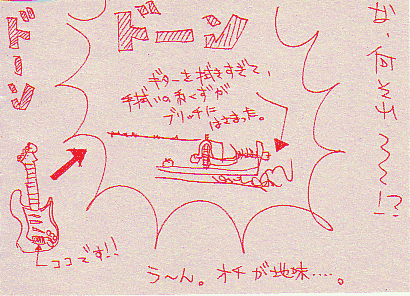 ドーン
ドーン
ギターを拭きすぎて、
手拭いの糸くずが
ブリッヂに
はさまった。
ココです!!
う〜ん。オチが地味……。